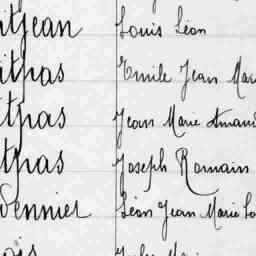 itjean Louis Léon
itpas Emile Jean Mar
itpas Jean Marie Amand
itpas Joseph Romain
Léon Jean Marie